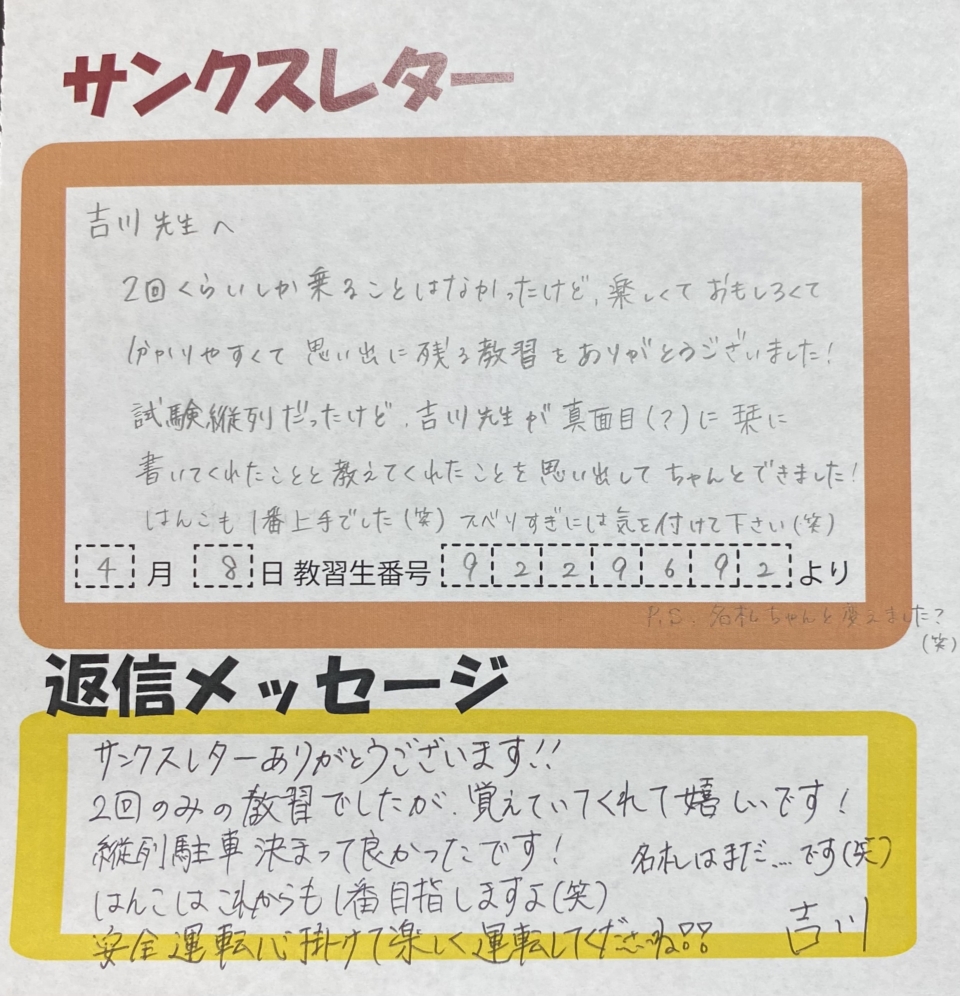 サンクスレター
吉川先生へ
2回くらいしか乗ることはなかったけど、楽しくておもしろくて
分かりやすくて思い出に残る教習をありがとうございました!
試験縦列だったけど、吉川先生が真面目(?)に栞に
書いてくれたことと教えてくれたことを思い出してちゃんとできました!
はんこも1番上手でした(笑)スベりすぎには気を付けて下さい(笑)
4月8日教習生番号9229692より
P.S. 名札ちゃんと覚えました?
(笑)
返信メッセージ
サンクスレターありがとうございます!!
2回のみの教習でしたが、覚えていてくれて嬉しいです!
縦列駐車決まって良かったです! 名札はまだ...です(笑)
はんこはこれからも1番目指しますよ(笑)
安全運転心掛けて楽しく運転してくださいね!! 吉川